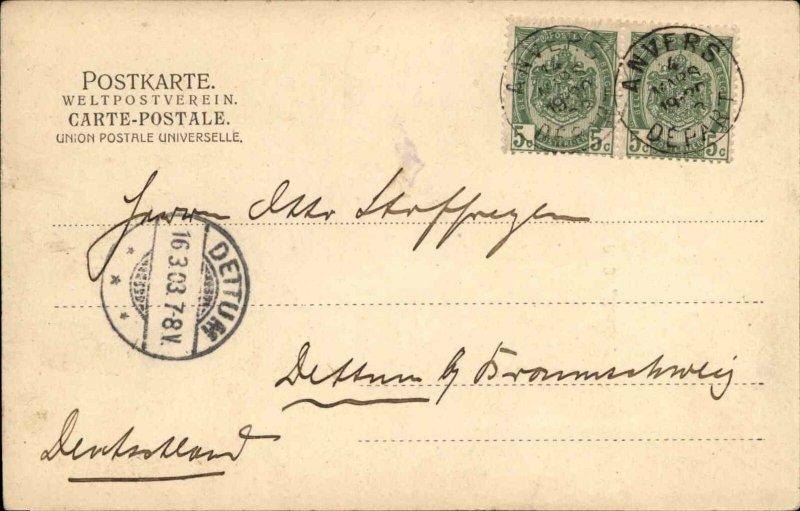 POSTKARTE.
WELTPOSTVEREIN.
CARTE-POSTALE.
UNION POSTALE UNIVERSELLE.
ANVERS
DEPART
ANVERS
MARS
DEPART
5c 5c 5c 5c
Herrn Otto Stoffregen
DETTUM
16.3.03.7-8V.
Dettum b/ Braunschweig
Deutschland